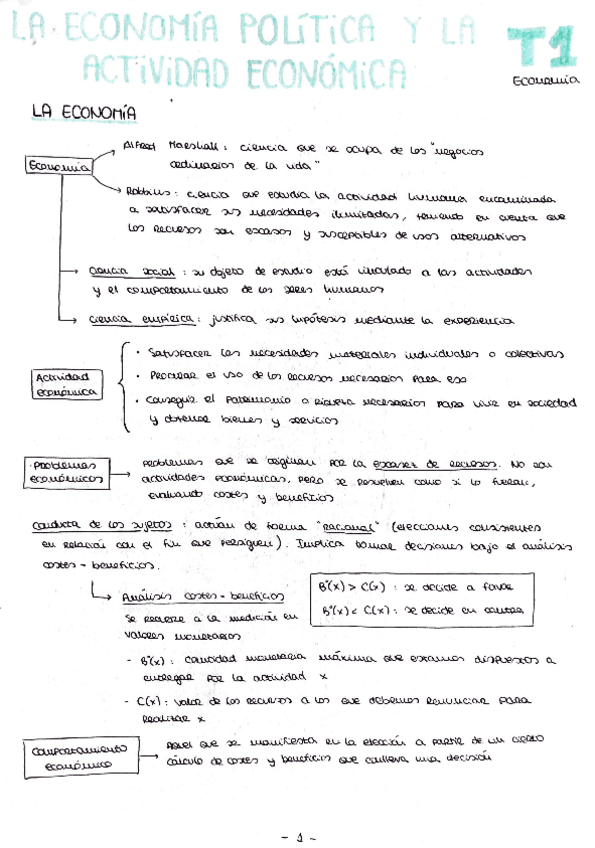 LA ECONOMÍA POLÍTICA Y LA
ACTIVIDAD ECONÓMICA
T1
Economía
LA ECONOMÍA
Economía
Alfred Marshall: ciencia que se ocupa de los "negocios
ordinarios de la vida"
Robbins: ciencia que estudia la actividad humana encaminada
a satisfacer sus necesidades ilimitadas, teniendo en cuenta que
los recursos son escasos y susceptibles de usos alternativos
Ciencia social: su objeto de estudio está vinculado a las actividades
y el comportamiento de los seres humanos
Ciencia empírica: justifica sus hipótesis mediante la experiencia
Actividad
económica
· Satisfacer las necesidades materiales individuales o colectivas
· Procurar el uso de los recursos necesarios para eso
· Conseguir el patrimonio o riqueza necesarios para vivir en sociedad
y obtener bienes y servicios
Problemas
económicos
problemas que se originan por la escasez de recursos. No son
actividades económicas, pero se resuelven como si lo fueran,
evaluando costes y beneficios
Conducta de los sujetos: actúan de forma "racional" (elecciones consistentes
en relación con el fin que persiguen). Implica tomar decisiones bajo el análisis
costes-beneficios.
Análisis costes-beneficios
Se recurre a la medición en
valores monetarios
B(x) > C(x) : se decide a favor
B(x) < C(x) : se decide en contra
- B(x) : cantidad monetaria máxima que estamos dispuestos a
entregar por la actividad x
- C(x) : valor de los recursos a los que debemos renunciar para
realizar x
Comportamiento
económico
Aquel que se manifiesta en la elección a partir de un cierto
cálculo de costes y beneficios que conlleva una decisión
- 1 -